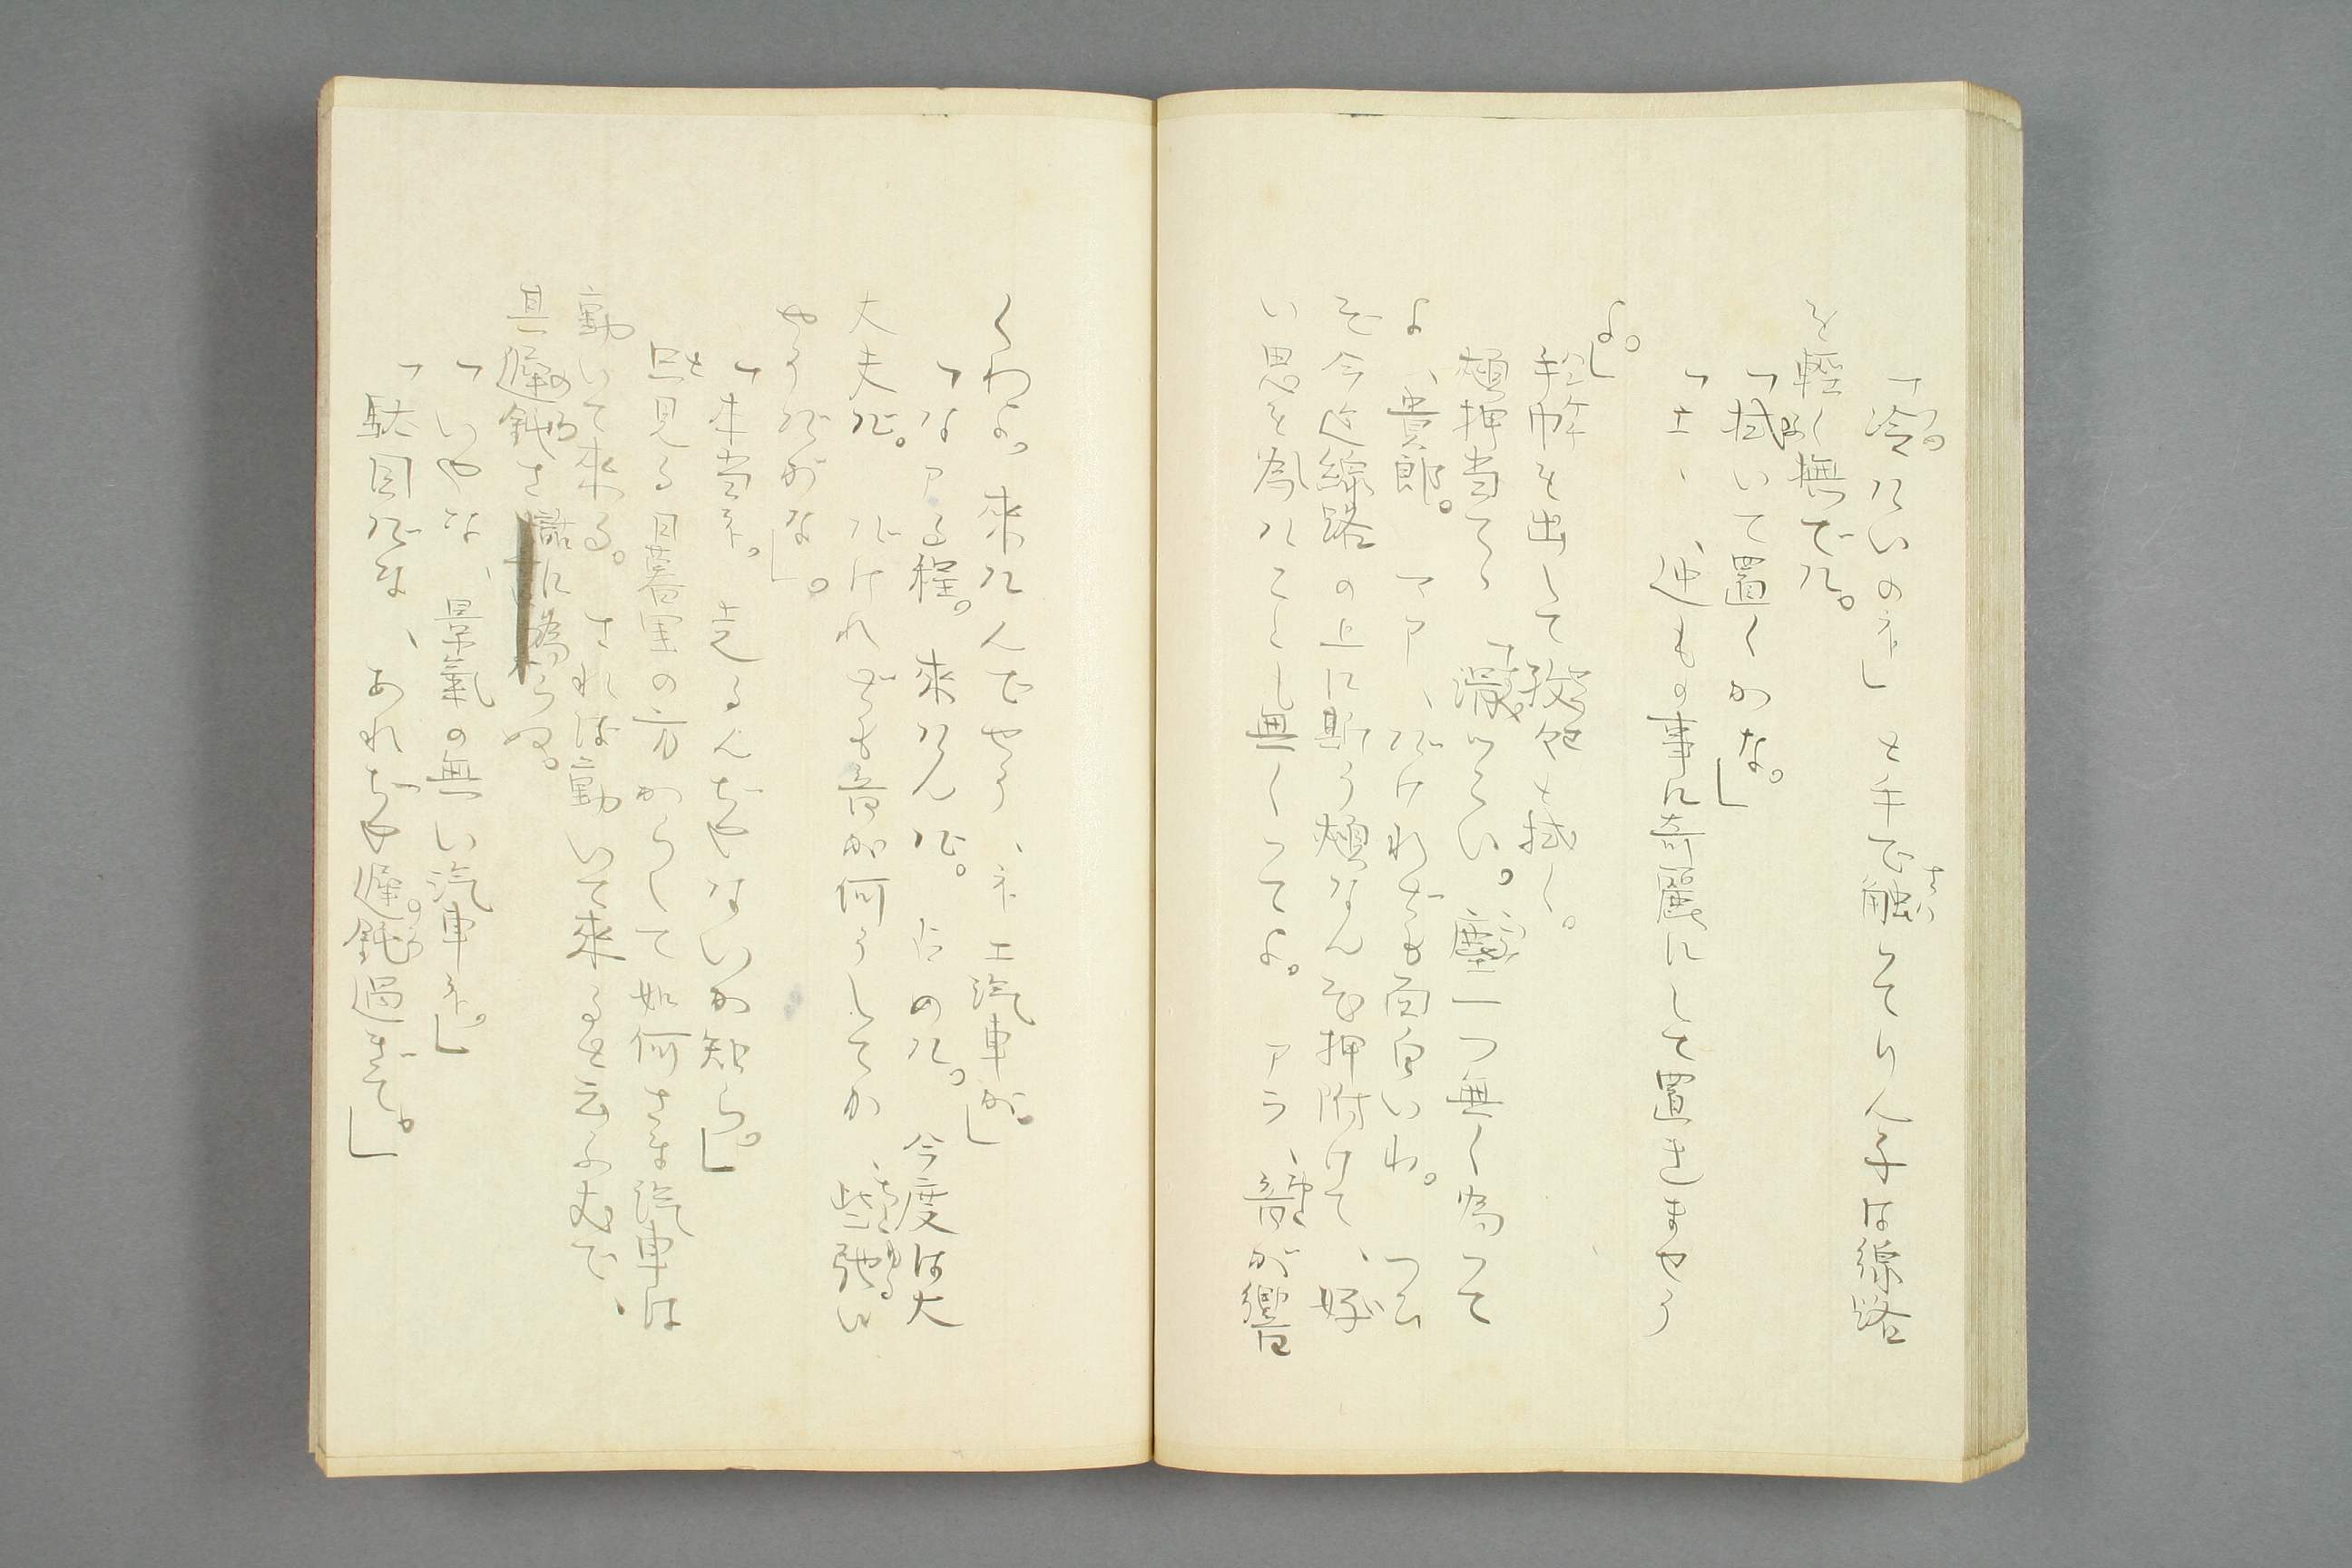 「冷たいのネ」と手で触つてりん子は線路
を軽く撫でた。
「拭いて置くかな。」
「エ、、迚もの事に奇麗にして置きませう
よ。」
手巾を出して殺
頬押当てゝ「滑つこい。塵一つ無く為つて
よ、貴郎。アア、だけれども面白いわ。つひ
ぞ今迄線路の上に斯う頬なんぞ押附けて、好
い思を為たこと無くつてよ。アラ、音が響
くわよ。来たんでせう、ネエ汽車が。」
「なアる程。来たんだ。たのた。今度は大
大夫だ。だけれども音が何うしてか、些弛い
やうだがな」。
「本当ネ。走るんぢやないか知ら。」
と見る日暮里の方からして如何さま汽車は
動いて来る。されば動いて来ると云ふ丈で、
其遅鈍さ話に為らぬ。
「いやな、景氣の無い汽車ネ。」
「駄目だな、あれぢや遅鈍過ぎて。」